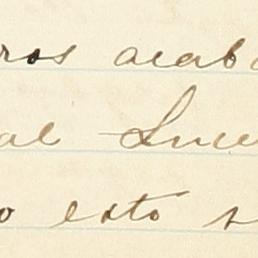 ros acab
al Luce
o esto s